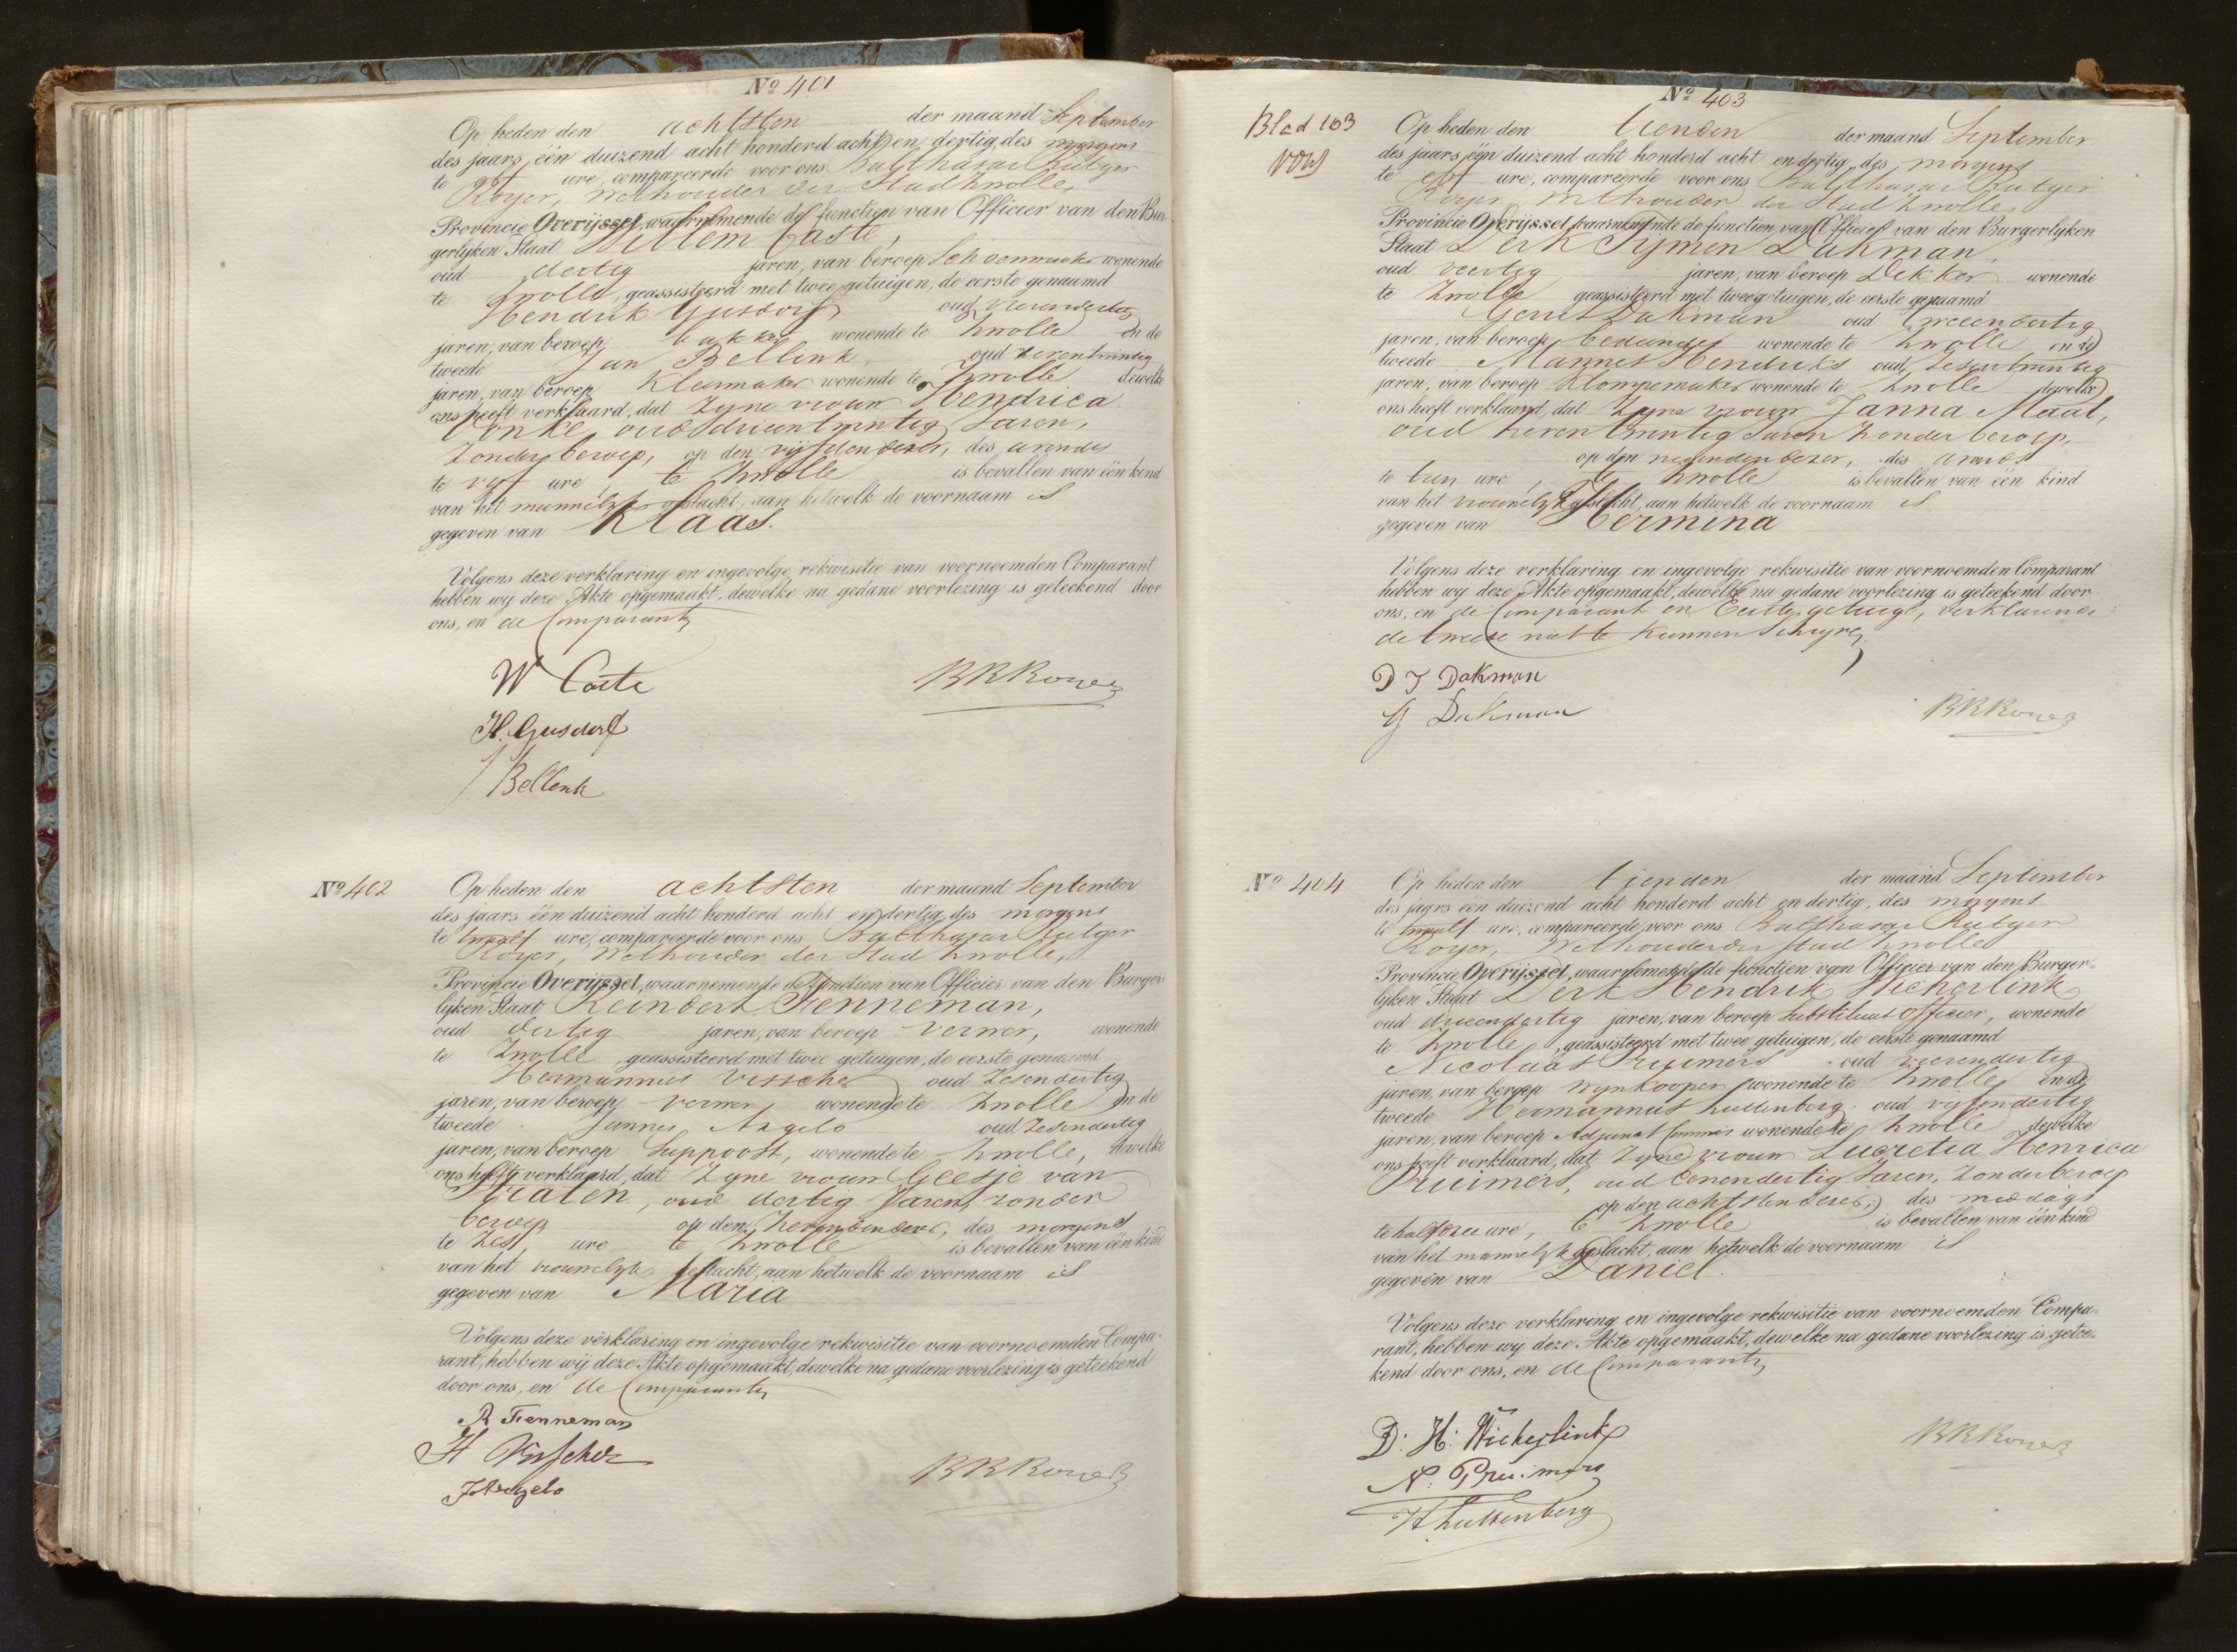 No 401
Op heden den achtsten der maand September
des jaars, één duizend acht honderd acht en dertig, des morgens
te elf ure, compareerde voor ons Balthasar Rutger
Royer, Wethouder der Stad Zwolle,
Provincie Overijssel, waarnemende de functien van Officier van den Bur-
gerlyken Staat Willem Caste,
oud dertig jaren, van beroep Schoenmaker wonende
te Zwolle, geassisteerd met twee getuigen, de eerste genaamd
Hendrik Gusdorf oud vierendertig
jaren, van beroep bakker wonende te Zwolle en de
tweede Jan Bellink oud
jaren, van beroep Kleermaker wonende te Zwolle dewelke
ons heeft verklaard, dat Zyne vrouw Hendrica
Vonke, oud drieentwintig Jaren,
Zonder beroep, op den vyfden dezer, des avonds
te vyf ure, te Zwolle is bevallen van één kind
van het mannelyk geslacht, aan hetwelk de voornaam is
gegeven van Klaas.
Volgens deze verklaring en ingevolge rekwisitie van voornoemden Comparant
hebben wy deze Akte opgemaakt, dewelke na gedane voorlezing is geteekend door
ons, en de Comparanten
W Caste
BRRoyer
H. Gusdorf
J Bellenk
No 402
Op heden den achtsten der maand September
des jaars één duizend acht honderd acht en dertig, des morgens
te twaalf ure, compareerde voor ons Balthasar Rutger
Royer, Wethouder der Stad Zwolle,
Provincie Overijssel, waarnemende de functien van Officier van den Burger-
lyken Staat Reindert Fenneman,
oud dertig jaren, van beroep Verwer, wonende
te Zwolle, geassisteerd met twee getuigen, de eerste genaamd
Hermannus Visscher oud Zesendertig
jaren, van beroep Verwer, wonende te Zwolle en de
tweede Jannes Angelo oud Zesendertig
jaren, van beroep Suppoost, wonende te Zwolle, dewelke
ons heeft verklaard, dat Zyne vrouw Geesje van
Straten, oud dertig Jaren, zonder
beroep op den Zevenden dezer, des morgens
te Zes ure te Zwolle is bevallen van één kind
van het vrouwelyk geslacht, aan hetwelk de voornaam is
gegeven van Maria
Volgens deze verklaring en ingevolge rekwisitie van voornoemden Compa-
rant, hebben wij deze Akte opgemaakt, dewelke na gedane voorlezing is geteekend
door ons, en de Comparanten
R Fenneman
H Visscher
J Angelo
BRRoyer
Blad 103
No 403
Op heden den tienden der maand September
des jaars één duizend acht honderd acht en dertig, des morgens
te elf ure, compareerde voor ons Balthasar Rutger
Royer, Wethouder der Stad Zwolle,
Provincie Overijssel, waarnemende de functien van Officier van den Burgerlyken
Staat Derk Symen Dakman,
oud veertig jaren, van beroep Dekker wonende
te Zwolle geassisteerd met twee getuigen, de eerste genaamd
Gerrit Dakman oud tweeendertig
jaren, van beroep bediende wonende te Zwolle en de
tweede Mannes Hendriks oud Zesentwintig
jaren, van beroep Klompemaker wonende te Zwolle dewelke
ons heeft verklaard, dat Zyne vrouw Janna Maat,
oud Zevenentwintig Jaren Zonder beroep,
op den negenden dezer, des avonds
te tien ure, te Zwolle is bevallen van één kind
van het vrouwelyk geslacht, aan hetwelk de voornaam is
gegeven van Hermina
Volgens deze verklaring en ingevolge rekwisitie van voornoemden Comparant
hebben wy deze Akte opgemaakt, dewelke na gedane voorlezing is geteekend door
ons, en de Comparant en Eerste getuige, verklarende
de tweede niet te kunnen Schryven
D J Dakman
G Dakman
BRRoyer
No 404
Op heden den tienden der maand September
des jaars één duizend acht honderd acht en dertig, des morgens
te twaalf ure, compareerde voor ons Balthasar Rutger
Royer, Wethouder der Stad Zwolle
Provincie Overijssel, waarnemende de functien van Officier van den Burger-
lyken Staat Derk Hendrik Wicherlink
oud drieendertig jaren, van beroep Substituut Officier, wonende
te Zwolle, geassisteerd met twee getuigen, de eerste genaamd
Nicolaas Pruimers oud vierendertig
jaren, van beroep Wynkooper wonende te Zwolle en de
tweede Hermannus Luttenberg oud vyfendertig
jaren, van beroep Adjunct Commies wonende te Zwolle dewelke
ons heeft verklaard, dat Zyne vrouw Lucretia Henrica
Pruimers, oud Eenendertig Jaren, Zonder beroep
op den achtsten dezer, des middags
te half drie ure, te Zwolle is bevallen van één kind
van het mannelyk geslacht, aan hetwelk de voornaam is
gegeven van Daniel
Volgens deze verklaring en ingevolge rekwisitie van voornoemden Compa-
rant, hebben wy deze Akte opgemaakt, dewelke na gedane voorlezing is getee-
kend door ons, en de Comparanten
D: H: Wicherlink
N: Pruimers
H Luttenberg
BRRoyer